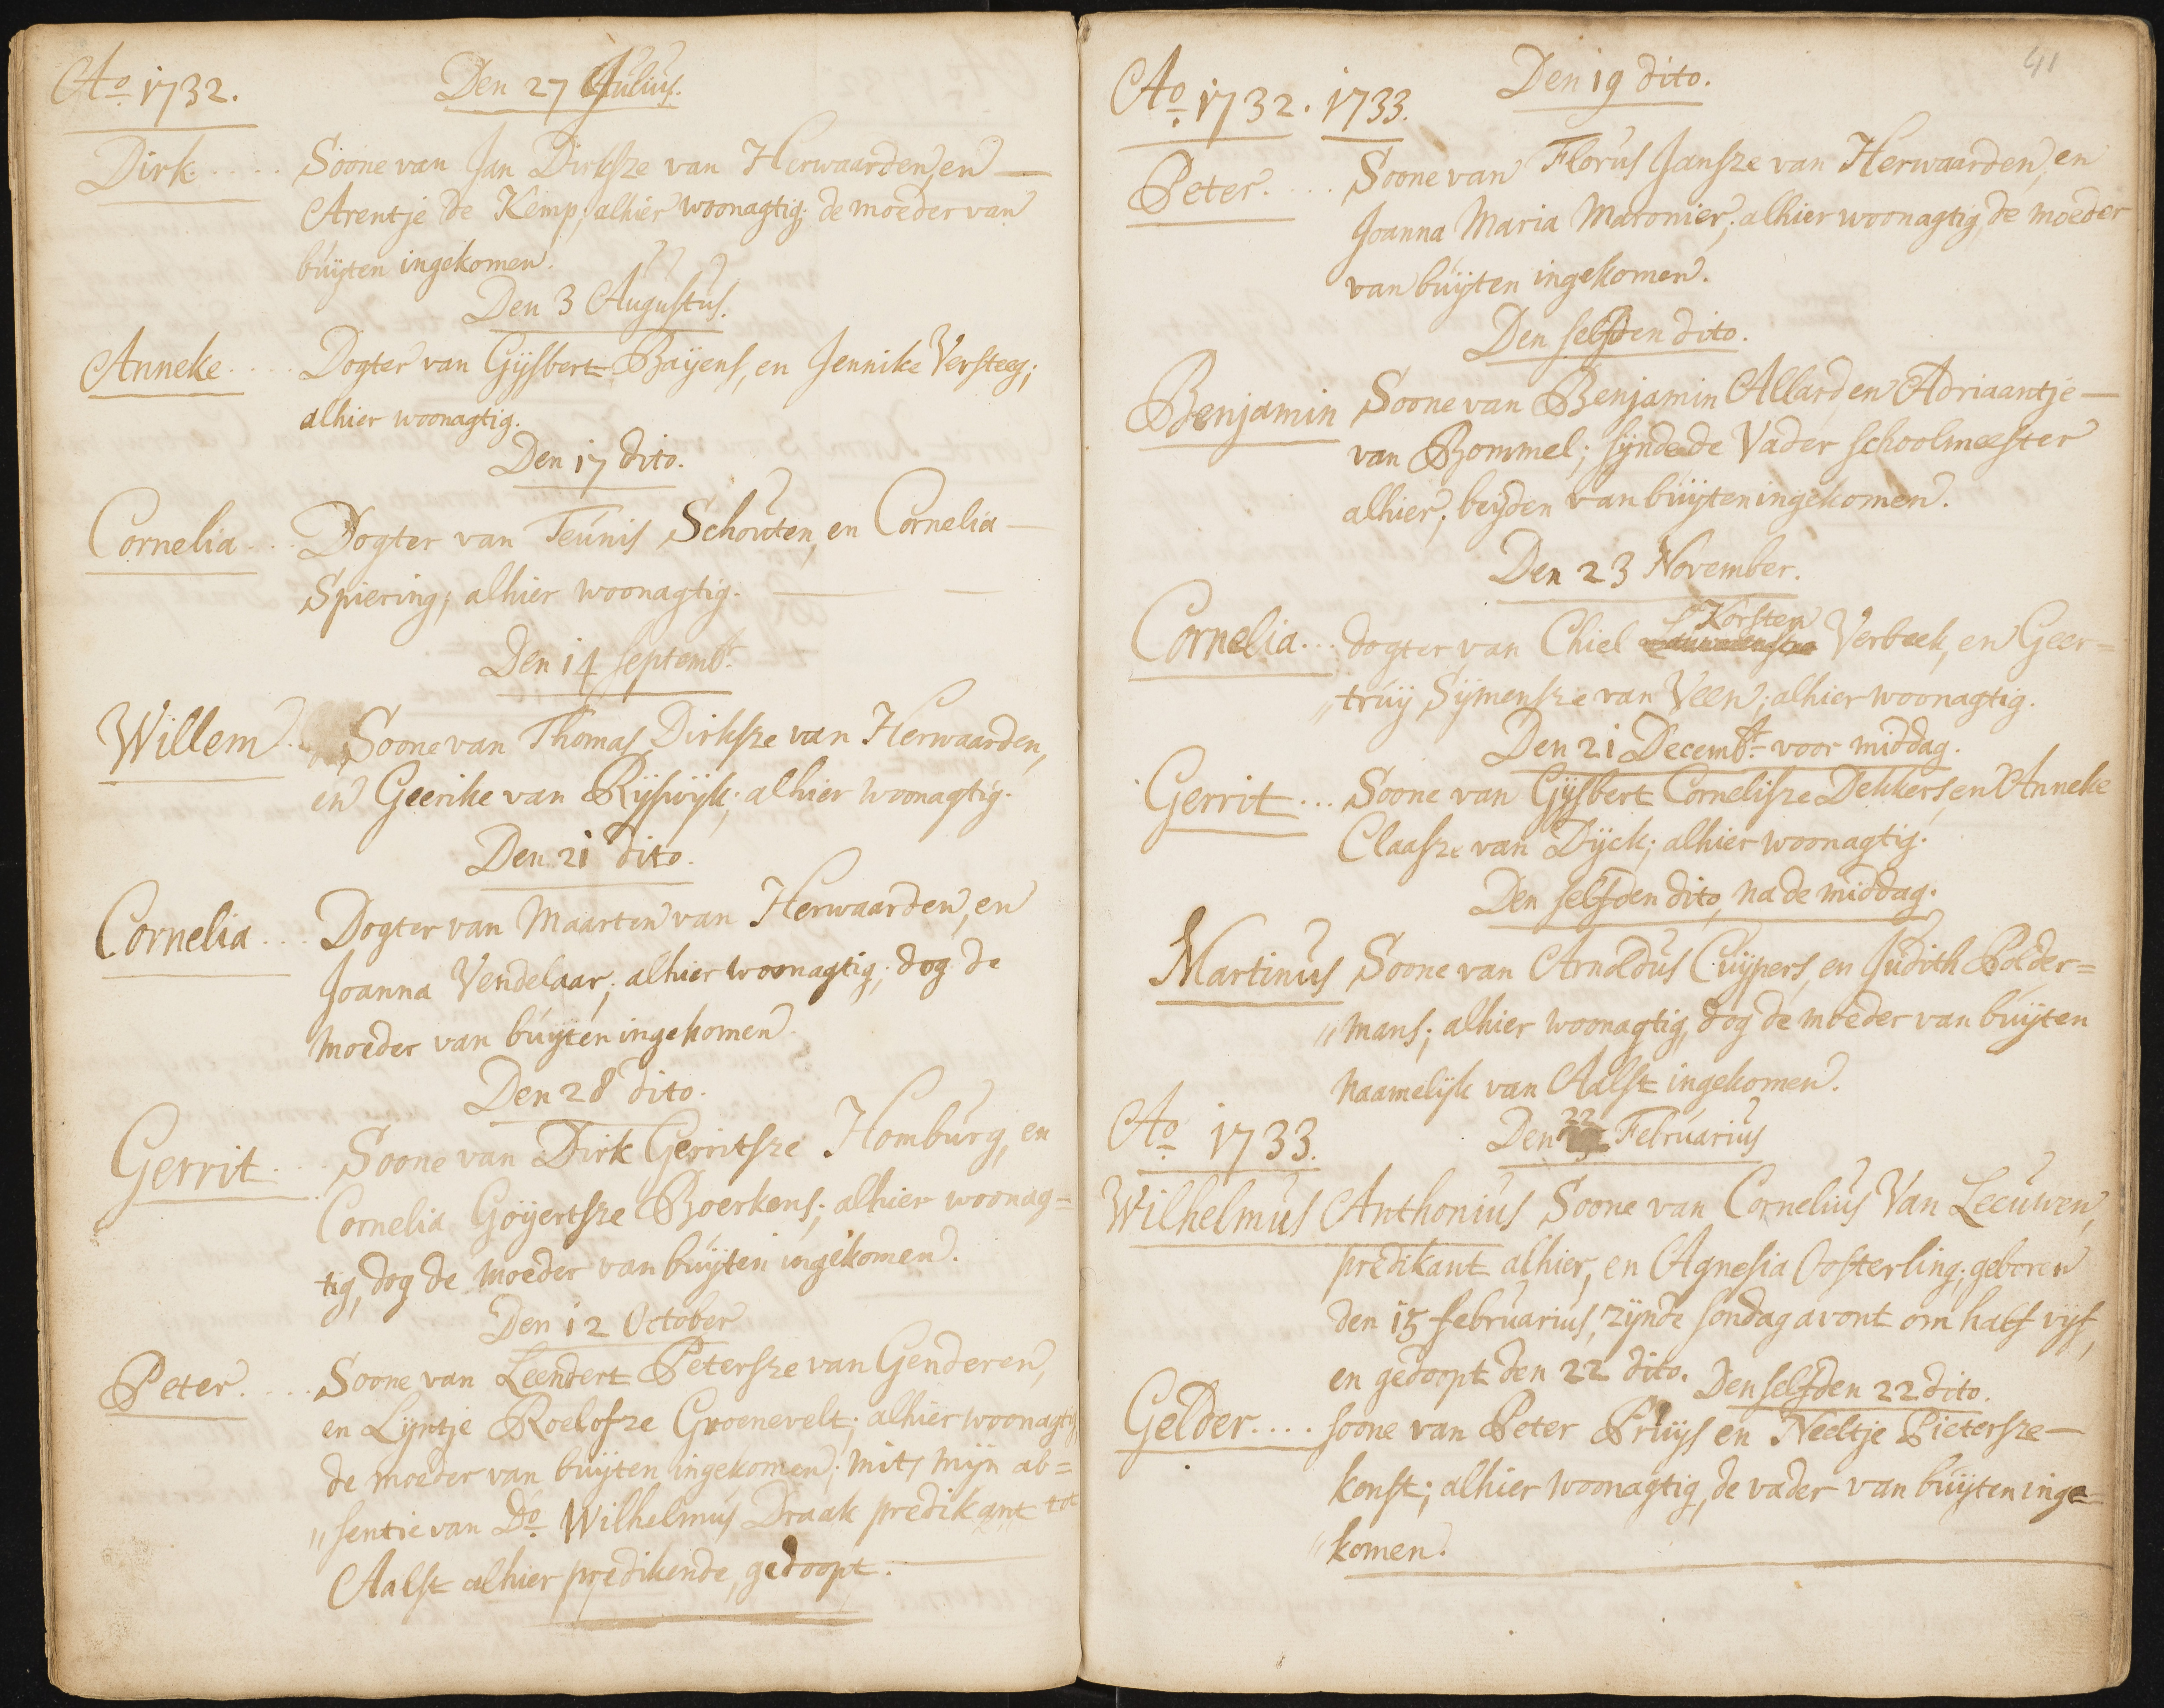 Ao 1732. Den 27 Julius.
Dirk..... Soone van Jan Dirksze van Herwaarden, en —
Arentje de Kemp; alhier woonagtig; de moeder van
buÿten ingekomen.
Den 3 Augustus.
Anneke.... Dogter van Gijsbert Baÿens, en Jennike Versteeg;
alhier woonagtig.
Den 17 dito.
Cornelia... Dogter van Teunis Schouten, en Cornelia —
Spiering; alhier woonagtig. —
Den 14 Septembr.
Willem.. Soone van Thomas Dirksze van Herwaarden,
en Geerike van Rÿswÿk; alhier woonagtig.
Den 21 dito.
Cornelia... Dogter van Maarten van Herwaarden, en
Joanna Vendelaar; alhier woonagtig; dog de
moeder van buÿten ingekomen.
Den 28 dito.
Gerrit... Soone van Dirk Gerritsze Homburg, en
Cornelia Goÿertsze Boerkens; alhier woonag=
tig, dog de moeder van buÿten ingekomen.
Den 12 October
Peter.... Soone van Leendert Petersze van Genderen,
en Lÿntje Roelofze Groenevelt; alhier woonagtig
de moeder van buÿten ingekomen; mits mijn ab=
„sentie van Do Wilhelmus Draak predikant tot
Aalst alhier predikende, gedoopt.
41
Ao 1732. 1733. Den 19 dito.
Peter.... Soone van Florus Jansze van Herwaarden, en
Joanna Maria Maronier; alhier woonagtig, de moeder
van buÿten ingekomen.
Den selfden dito.
Benjamin Soone van Benjamin Allard en Adriaantje —
van Bommel; sÿnde de Vader schoolmeester
alhier; beÿden van buÿten ingekomen.
Den 23 November.
Korsten
Cornelia... dogter van Chiel Verbeek, en Geer=
„truÿ Sÿmensze van Veen; alhier woonagtig.
Den 21 Decembr voor middag.
Gerrit... Soone van Gÿsbert Cornelisze Dekkers, en Anneke
Claasze van Dÿck; alhier woonagtig.
Den selfden dito, na de middag.
Martinus Soone van Arnoldus Cuÿpers, en Judith Polder=
„mans; alhier woonagtig, dog de moeder van buÿten
naamelÿk van Aalst ingekomen.
Ao 1733. Den 22 Februarius
Wilhelmus Anthonius Soone van Cornelius Van Leeuwen,
predikant alhier, en Agnesia Oosterling; geboren
den 15 februarius, zÿnde sondag avont om half vÿf,
en gedoopt den 22 dito. Den selfden 22 dito.
Gelder.... soone van Peter Pruÿs en Neeltje Pietersze —
konst; alhier woonagtig, de vader van buÿten inge=
„komen.